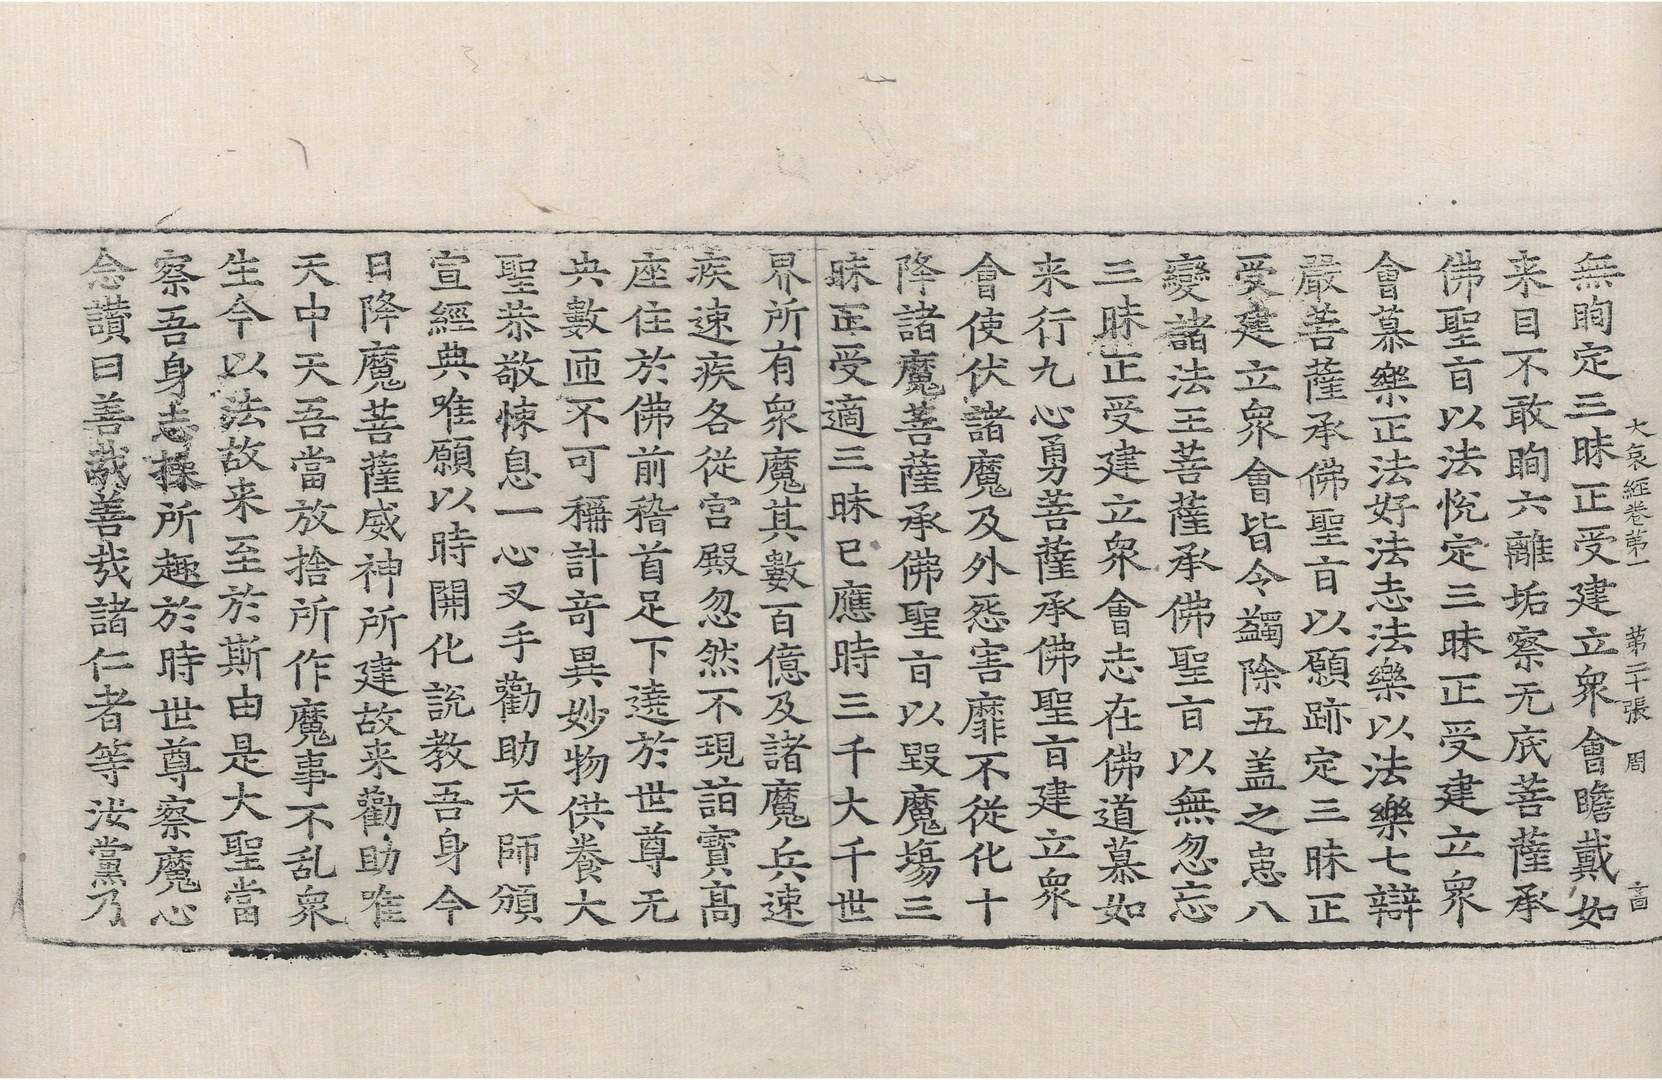 大哀經卷第一 第二十張 周 啚
無眴定三昧正受建立衆會瞻戴如
来目不敢眴六離垢察无底菩薩承
佛聖旨以法悅定三昧正受建立衆
會慕樂正法好法志法樂以法樂七辯
嚴菩薩承佛聖旨以願跡定三昧正
受建立衆會皆令蠲除五盖之患八
變諸法王菩薩承佛聖旨以無忽忘
三昧正受建立衆會志在佛道慕如
来行九心勇菩薩承佛聖旨建立衆
會使伏諸魔及外怨害靡不從化十
降諸魔菩薩承佛聖旨以毀魔場三
昧正受適三昧已應時三千大千世
界所有衆魔其數百億及諸魔兵速
疾速疾各從宮殿忽然不現詣寶高
座住於佛前稽首足下遶於世尊无
央數匝不可稱計奇異妙物供養大
聖恭敬悚息一心叉手勸助天師頒
宣經典唯願以時開化說教吾身今
日降魔菩薩威神所建故来勸助唯
天中天吾當放捨所作魔事不乱衆
生今以法故来至於斯由是大聖當
察吾身志操所趣於時世尊察魔心
念讚曰善哉善哉諸仁者等汝黨乃